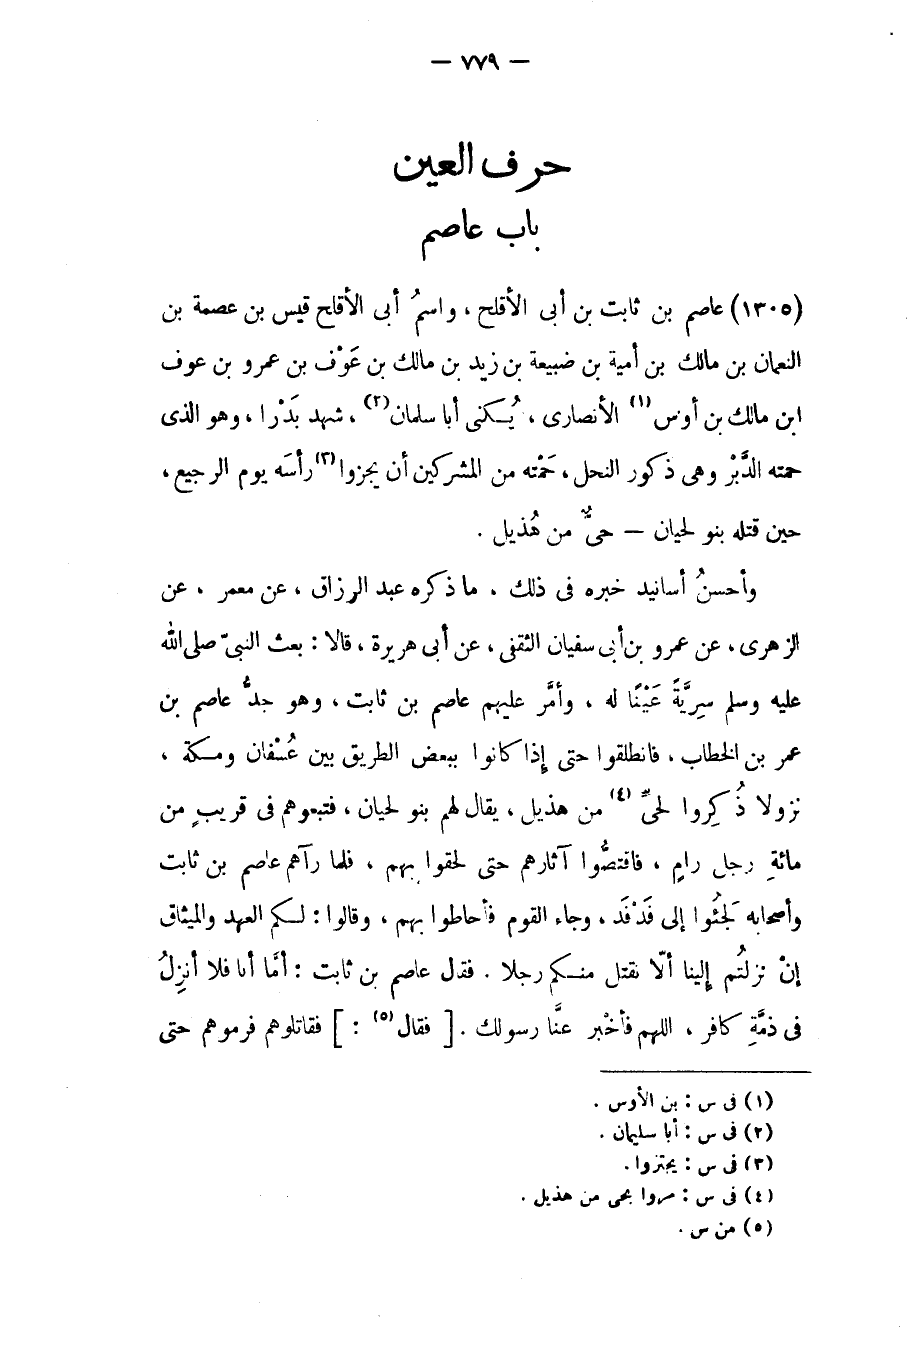 — ٧٧٩ —
حرف العين
باب عاصم
(١٣٠٥) عاصم بن ثابت بن أبى الأقلح ، واسمُ أبى الأقلح قيس بن عصمة بن
النعمان بن مالك بن أمية بن ضبيعة بن زيد بن مالك بن عَوْف بن عمرو بن عوف
ابن مالك بن أوس(١) الأنصارى ، يُكنى أبا سلمان(٢) ، شهد بَدْرا ، وهو الذى
حمته الدَّبْر وهى ذكور النحل ، حَمْته من المشركين أن يجزوا(٣) رأسَه يوم الرجيع ،
حين قتله بنو لحيان — حىٌّ من هُذيل .
وأحسنُ أسانيد خبره فى ذلك ، ما ذكره عبد الرزاق ، عن معمر ، عن
الزهرى ، عن عمرو بن أبى سفيان الثقفى ، عن أبى هريرة ، قالا : بعث النبىّ صلى الله
عليه وسلم سرِيَّةً عَيْنًا له ، وأمَّر عليهم عاصم بن ثابت ، وهو جدُّ عاصم بن
عمر بن الخطاب ، فانطلقوا حتى إذا كانوا ببعض الطريق بين عُسْفان ومكة ،
نزولا ذُكِروا لحىٍّ(٤) من هذيل ، يقال لهم بنو لحيان ، فتبعوهم فى قريبٍ من
مائةِ رجل رامٍ ، فاقتصُّوا آثارهم حتى لحقوا بهم ، فلما رآهم عاصم بن ثابت
وأصحابه لَجئُوا إلى فَدْفَد ، وجاء القوم فأحاطوا بهم ، وقالوا : لكم العهد والميثاق
إنْ نزلتُم إلينا ألّا نقتل منكم رجلا . فقال عاصم بن ثابت : أمَّا أنا فلا أنزِلُ
فى ذمَّةِ كافر ، اللهم فأخْبر عنَّا رسولك . [ فقال(٥) : ] فقاتلوهم فرموهم حتى
(١) فى س : بن الأوس .
(٢) فى س : أبا سليمان .
(٣) فى س : يجتزوا .
(٤) فى س : مروا بحى من هذيل .
(٥) من س .